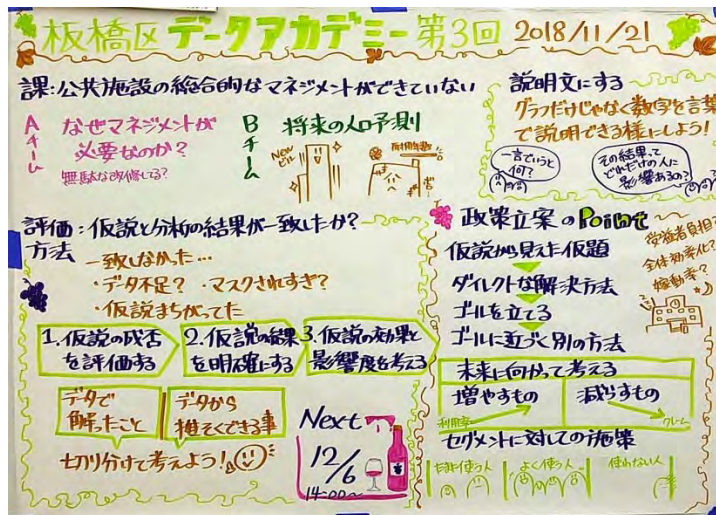 板橋区データアカデミー第3回 2018/11/21
課:公共施設の総合的なマネジメントができていない
Aチーム
なぜマネジメントが
必要なのか?
無駄な改修してる?
Bチーム
将来の人口予測
Newビル
耐用年数
説明文にする
グラフだけじゃなく数字を言葉
で説明できる様にしよう!
一言でいうと
何?
その結果って
どれだけの人に
影響あるの?
評価:仮説と分析の結果が一致したか?
方法
一致しなかった…
・データ不足? ・マスクされすぎ?
・仮説まちがってた
1.仮説の成否
を評価する
2.仮説の結果
を明確にする
3.仮説の効果と
影響度を考える
データで
解ったこと
データから
推そくできる事
切り分けて考えよう!
Next
12/6
14:00~
政策立案のPoint
仮説から見えた仮題
ダイレクトな解決方法
ゴールを立てる
ゴールに近づく別の方法
受益者負担?
全体効率化?
稼動率?
未来に向かって考える
増やすもの
利用率
減らすもの
クレーム
セグメントに対しての施策
たまに使う人
よく使う人
使わない人